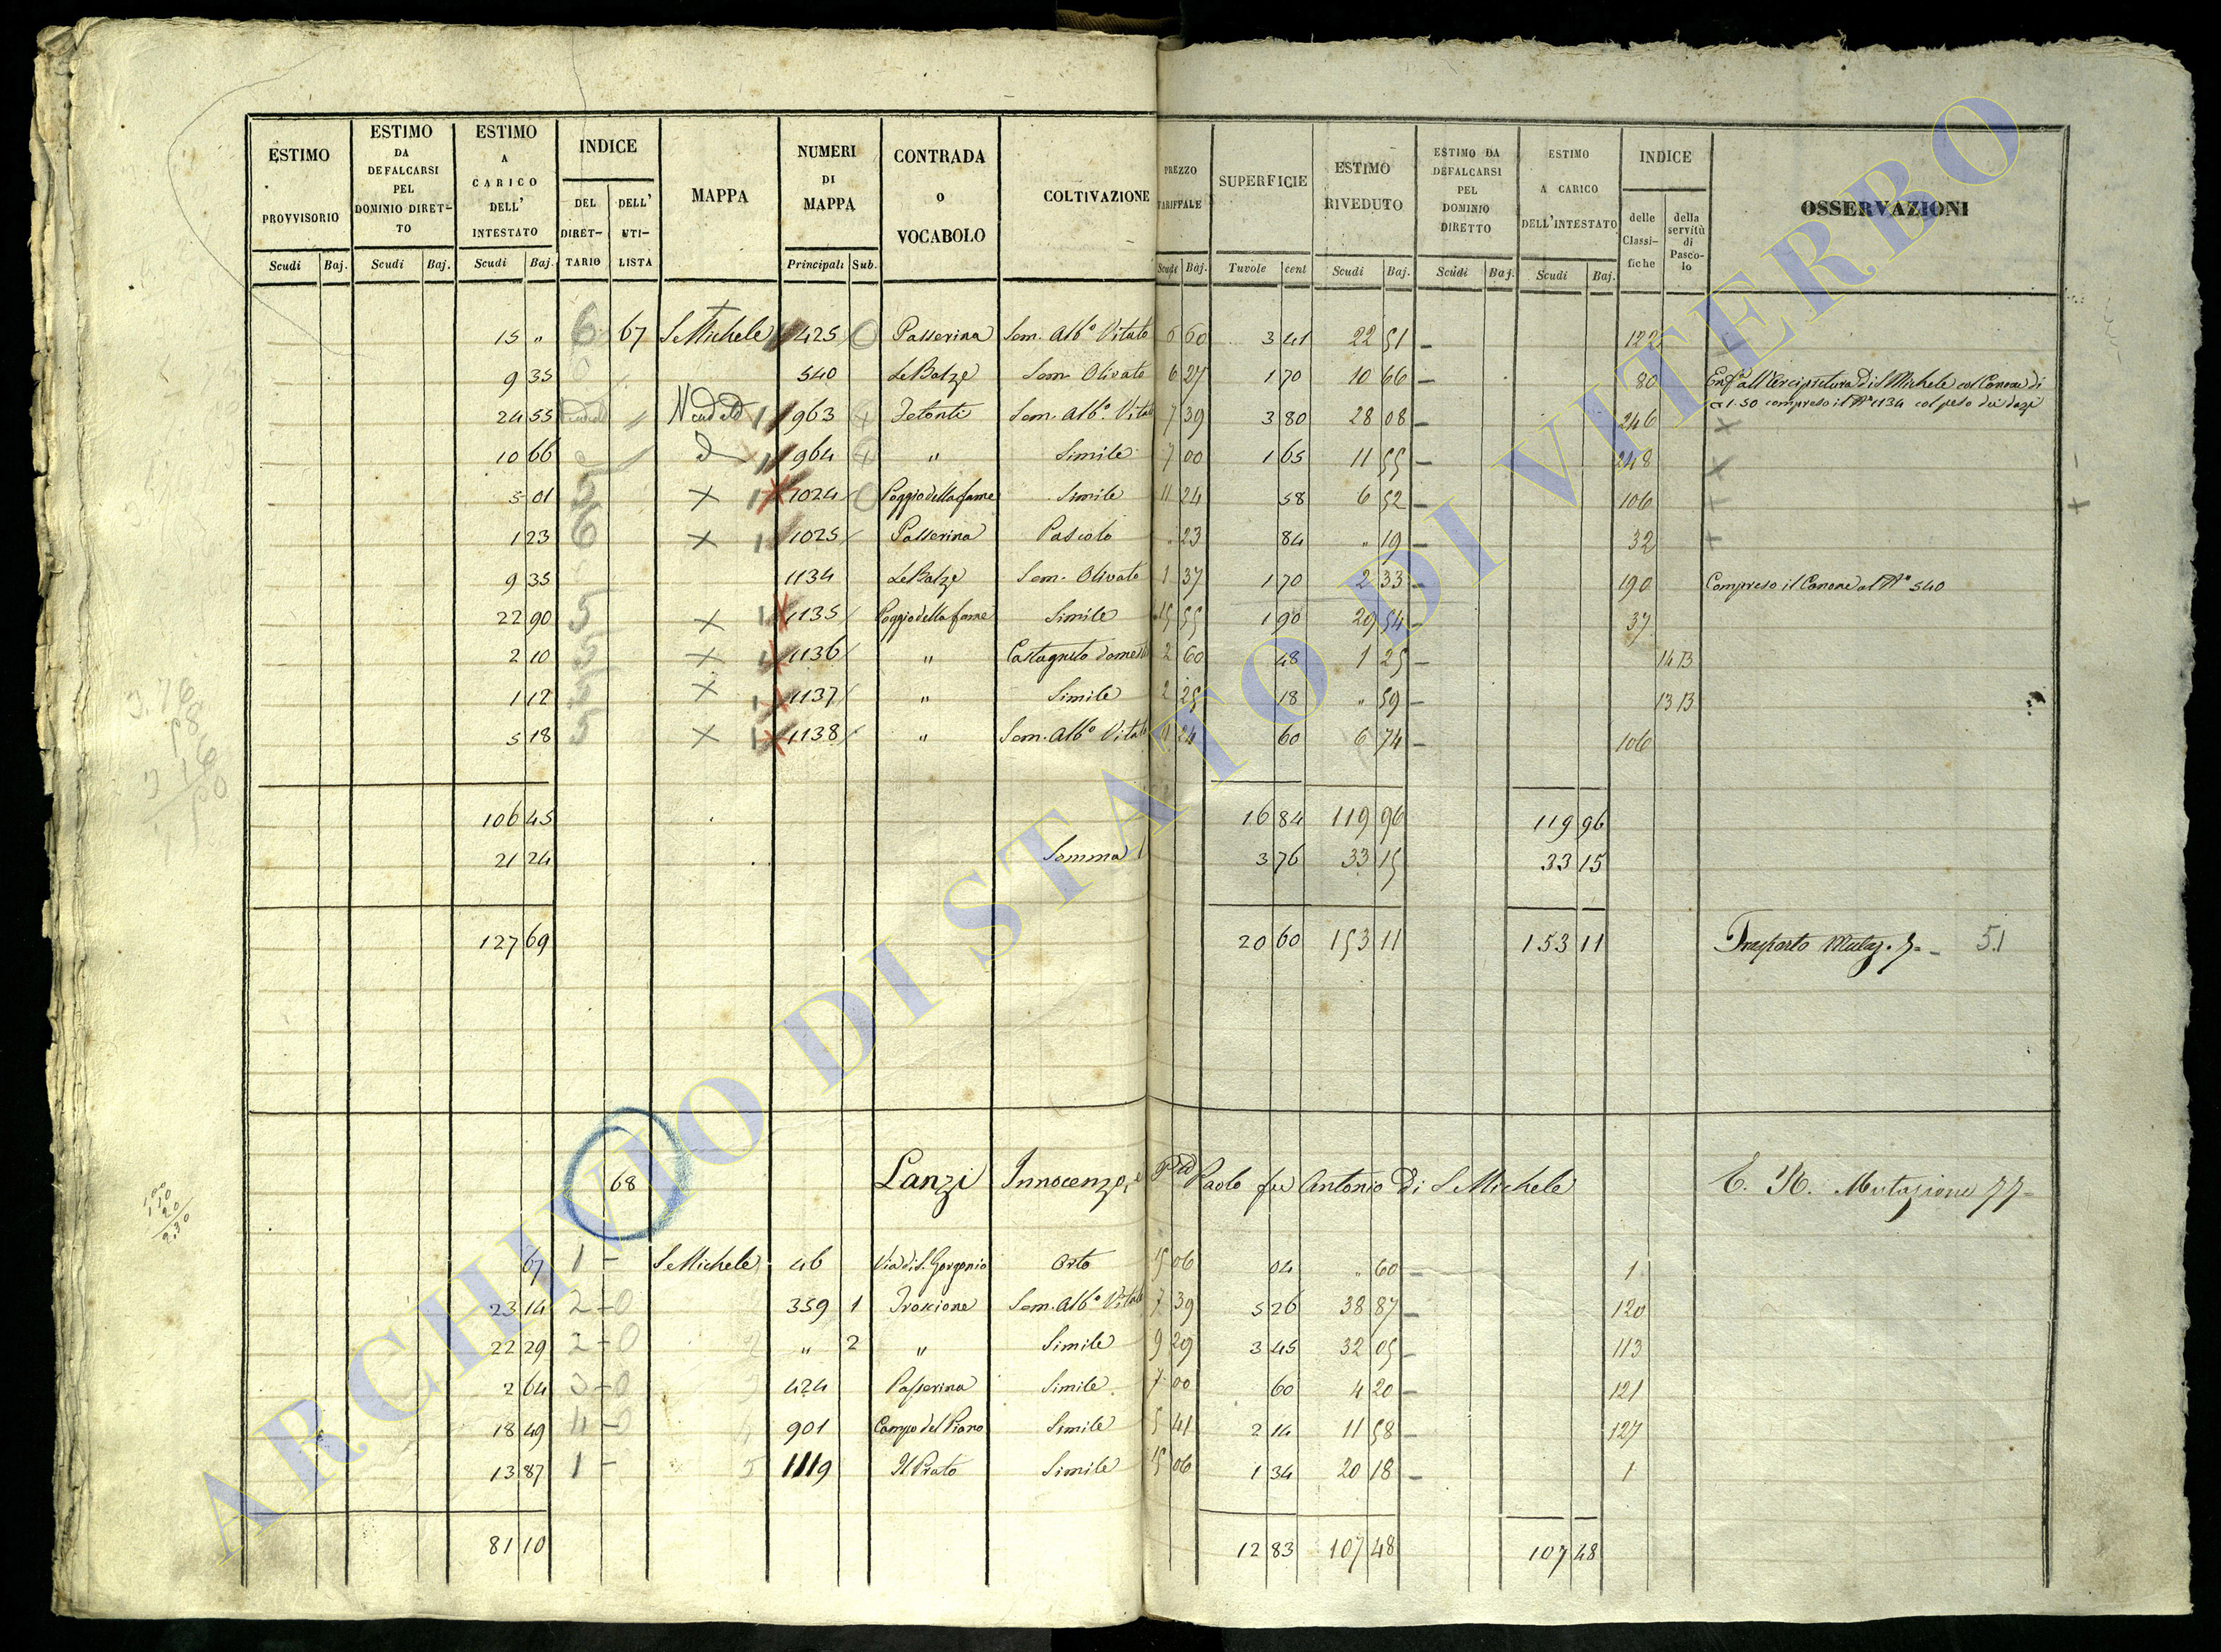 ESTIMO PROVVISORIO Scudi Baj.
ESTIMO DA DEFALCARSI PEL DOMINIO DIRET-TO Scudi Baj.
ESTIMO A CARICO DELL' INTESTATO Scudi Baj.
INDICE DEL DIRET-TARIO DELL' UTI-LISTA
MAPPA
NUMERI DI MAPPA Principali Sub.
CONTRADA o VOCABOLO
COLTIVAZIONE
PREZZO TARIFFALE Scudi Baj.
SUPERFICIE Tavole cent
ESTIMO RIVEDUTO Scudi Baj.
ESTIMO DA DEFALCARSI PEL DOMINIO DIRETTO Scudi Baj.
ESTIMO A CARICO DELL'INTESTATO Scudi Baj.
INDICE delle Classi-fiche della servitù di Pasco-lo
OSSERVAZIONI
15 „ 6 67 S. Michele 425 0 Passerina Sem. Alb.o Vitato 6 60 3 41 22 51 122
9 35 540 Le Balze Sem. Olivato 6 27 1 70 10 66 80
col Canone di
1.50 compreso il N.o 1134 col peso dei dazi
24 55 963 Sem. Alb.o Vitato 7 39 3 80 28 08 246 x
10 66 964 „ Simile 7 00 1 65 11 55 248 x
5 01 5 x 1 1024 0 Poggio della fame Simile 11 24 58 6 52 106 +
1 23 6 x 1 1025 Passerina Pascolo „ 23 84 „ 19 32 +
9 35 1134 Le Balze Sem. Olivato 1 37 1 70 2 33 190 Compreso il Canone al N.o 540
22 90 5 x 1 1135 Poggio della fame Simile 15 55 1 90 29 54 37
2 10 5 x 1 1136 „ Castagneto domestico 2 60 48 1 25 14 B
1 12 5 x 1 1137 „ Simile 2 25 18 „ 59 13 B
5 18 5 x 1 1138 „ Sem. Alb.o Vitato 11 24 60 6 74 106
106 45 16 84 119 96 119 96
21 24 Somma 3 76 33 15 33 15
127 69 20 60 153 11 153 11 Trasporto Mutaz. 51
68 Lanzi Innocenzo, e Paolo fu Antonio di S. Michele Mutazione 77
67 1 - S. Michele 46 Via di S. Gorgonio Orto 15 06 04 „ 60 1
23 14 2 - 0 359 1 Troscione Sem. Alb.o Vitato 7 39 5 26 38 87 120
22 29 2 - 0 „ 2 „ Simile 9 29 3 45 32 05 113
2 64 3 - 0 424 Passerina Simile 7 00 60 4 20 121
18 49 4 - 0 901 Campo del Piano Simile 5 41 2 14 11 58 127
13 87 1 - 5 1119 Il Prato Simile 15 06 1 34 20 18 1
81 10 12 83 107 48 107 48
ARCHIVIO DI STATO DI VITERBO